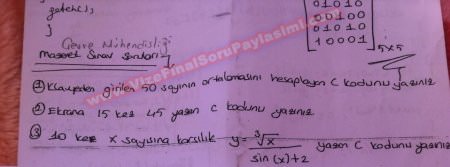 getch();
}
01010
00100
01010
10001
5x5
Çevre Mühendisliği
Mazeret Sınav Soruları
www.VizeFinalSoruPaylasimi.com
① Klavyeden girilen 50 sayının ortalamasını hesaplayan C kodunu yazınız
② Ekrana 15 kez 45 yazan C kodunu yazınız
③ 10 kez x sayısına karşılık y= ∛x / sin(x)+2 yazan C kodunu yazınız